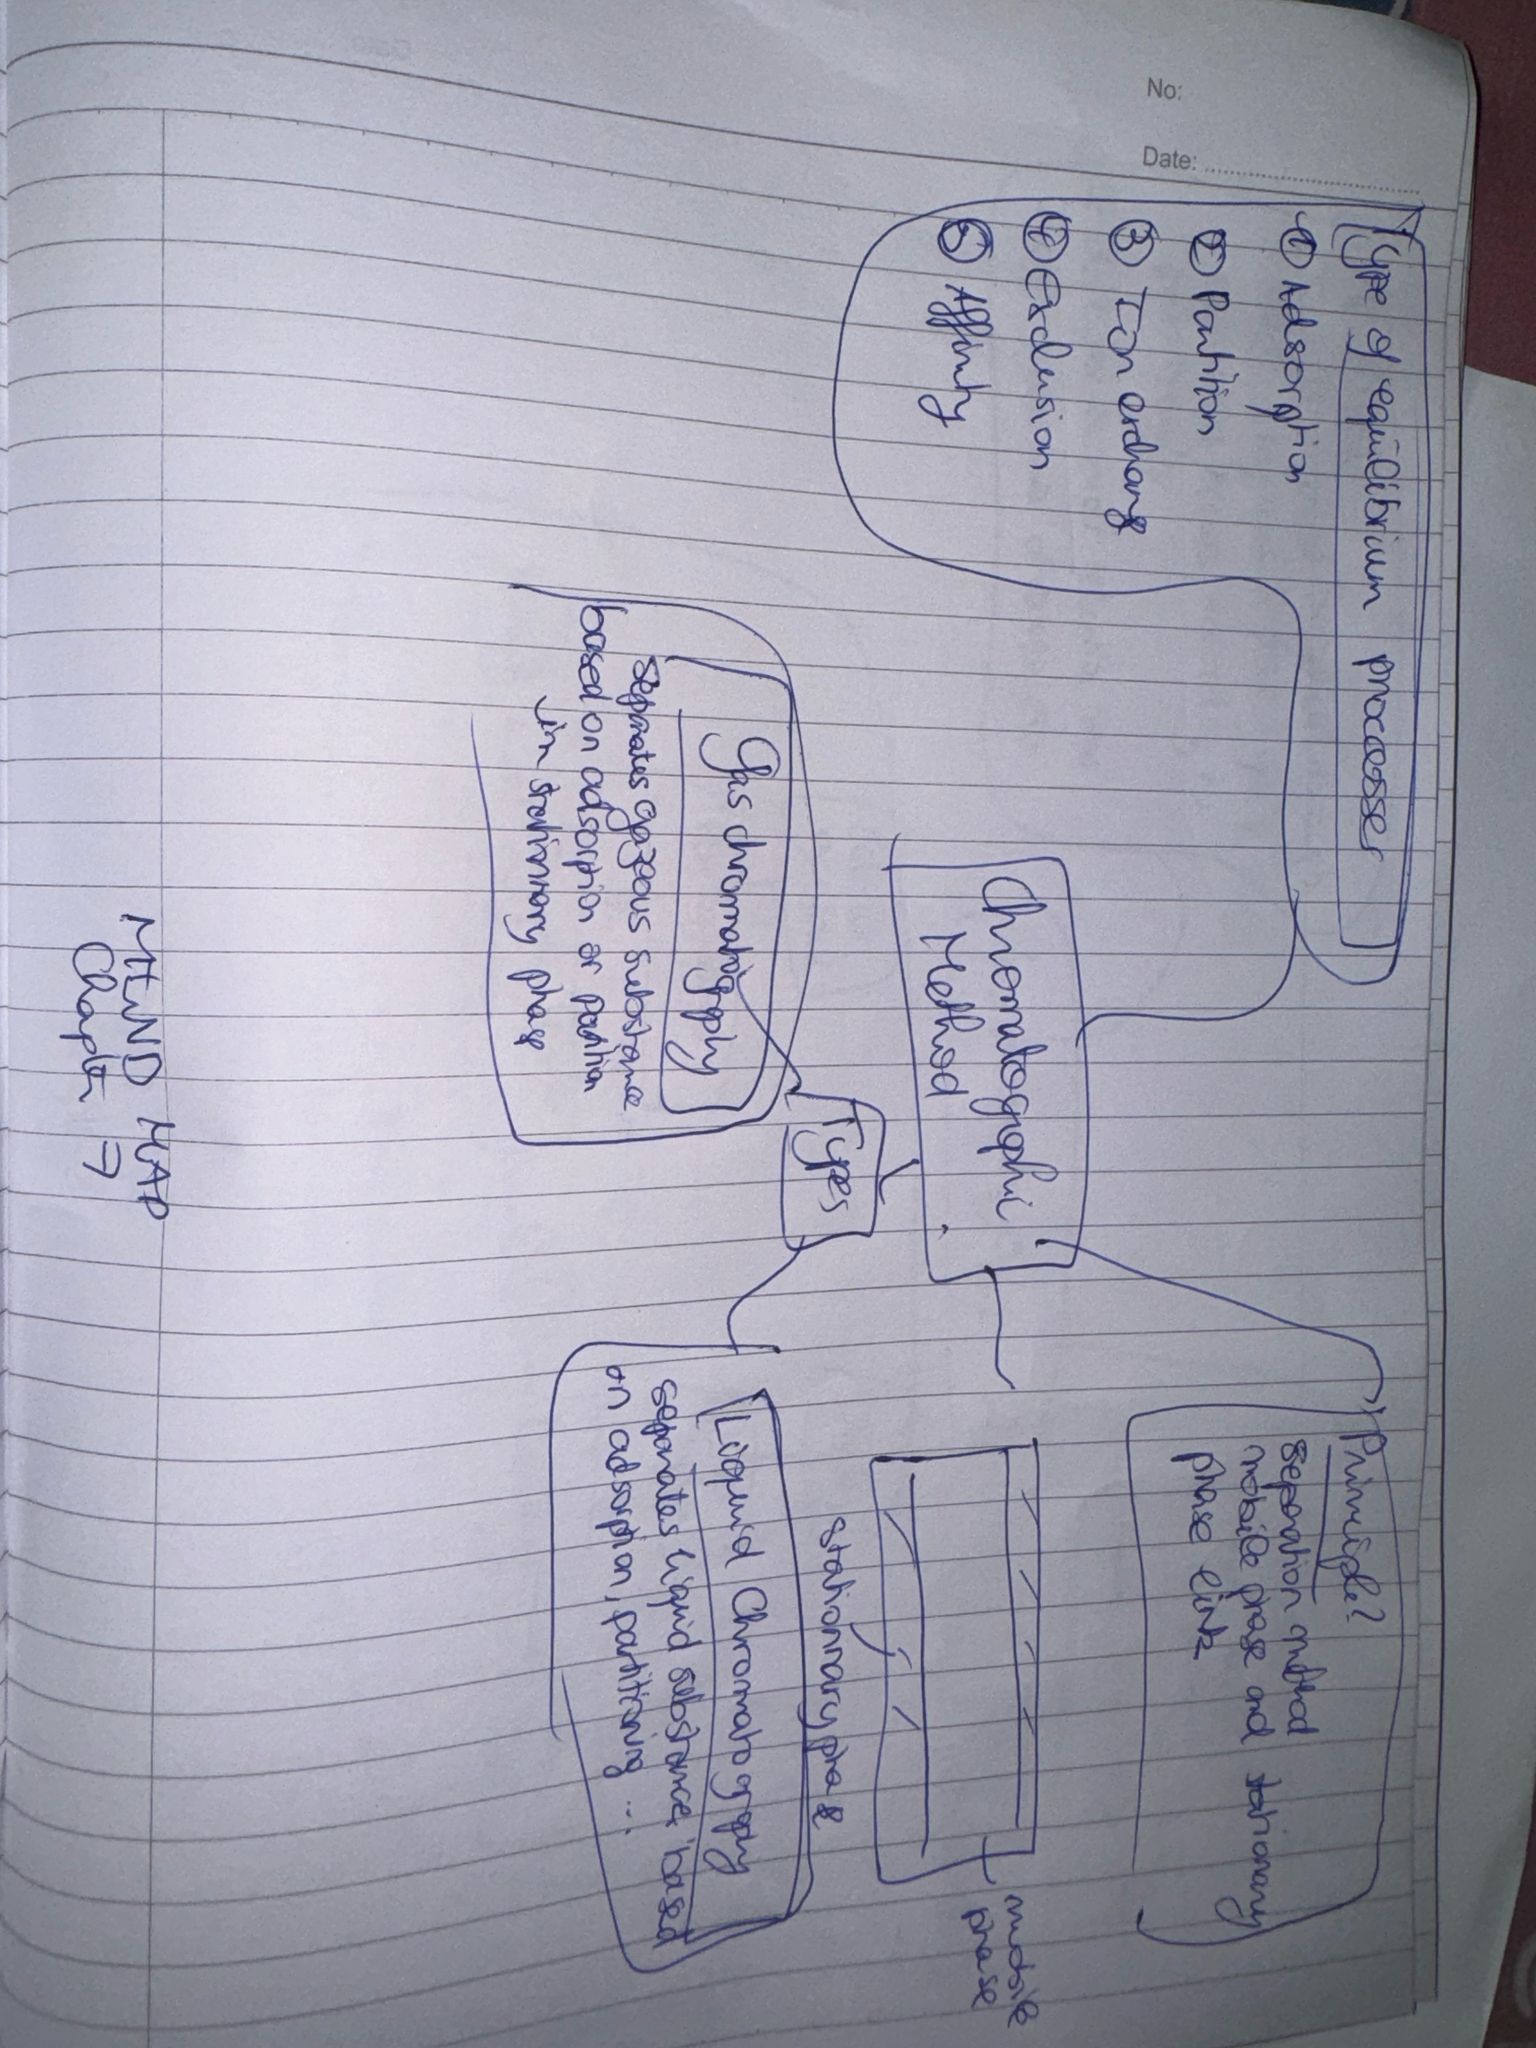 Type of equilibrium proccesses
① Adsorption
② Partition
③ Ion exchang
④ Exclusion
⑤ Affinity
Principle?
separation method
mobile phase and stationary
phase link
Chromatographic
Method
mobile
phase
stationnary phase
Types
Gas chromatography
separates gazeous substance
based on adsorption or partition
in stationnary phase
Lioquid Chromatography
separates liquid substances based
on adsorption, partitioning ...
No:
Date:
MIND MAP
Chapter 7